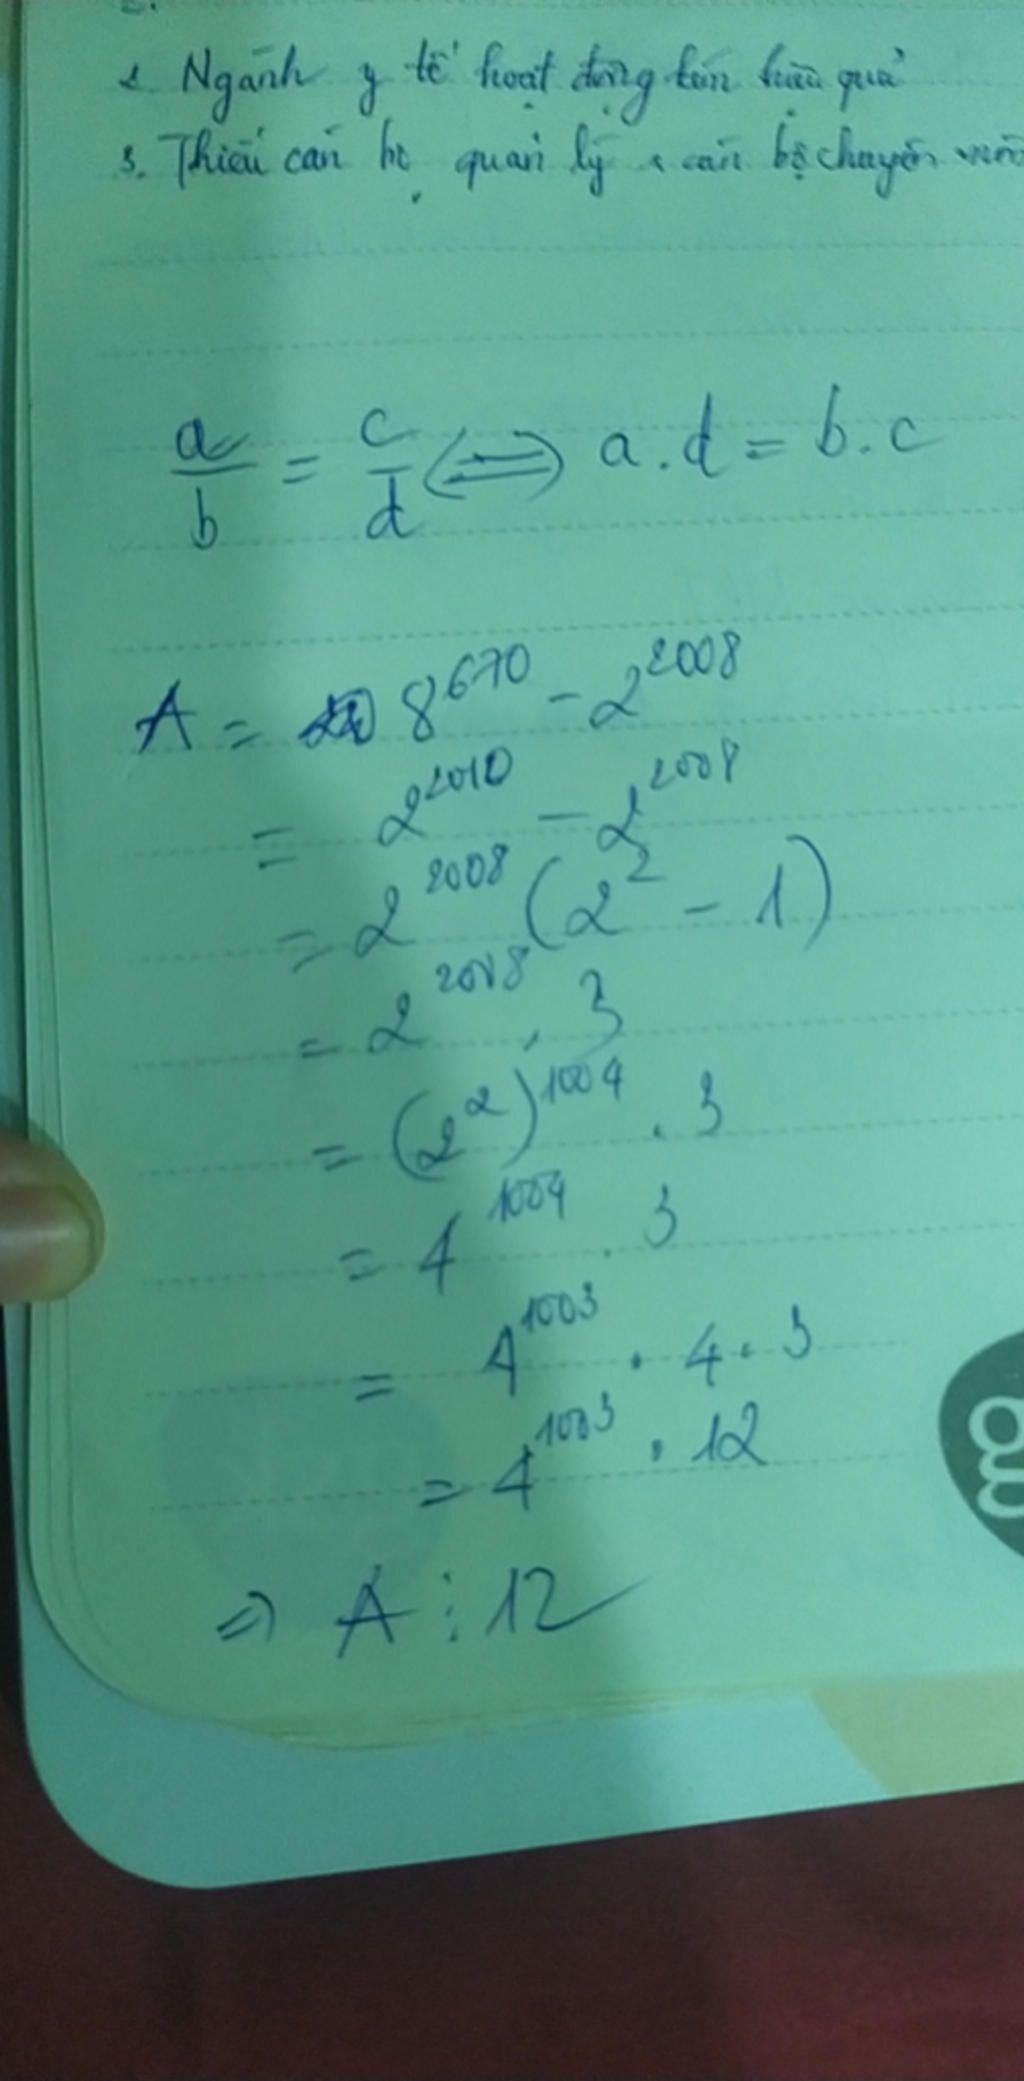 2. Ngành y tế hoạt động kém hiệu quả
3. Thiếu cán bộ quản lý, cán bộ chuyên môn
a/b = c/d (⇔) a.d = b.c
A = 8^670 - 2^2008
= 2^2010 - 2^2008
= 2^2008 (2^2 - 1)
= 2^2008 . 3
= (2^2)^1004 . 3
= 4^1004 . 3
= 4^1003 . 4 . 3
= 4^1003 . 12
⇒ A ⋮ 12
g